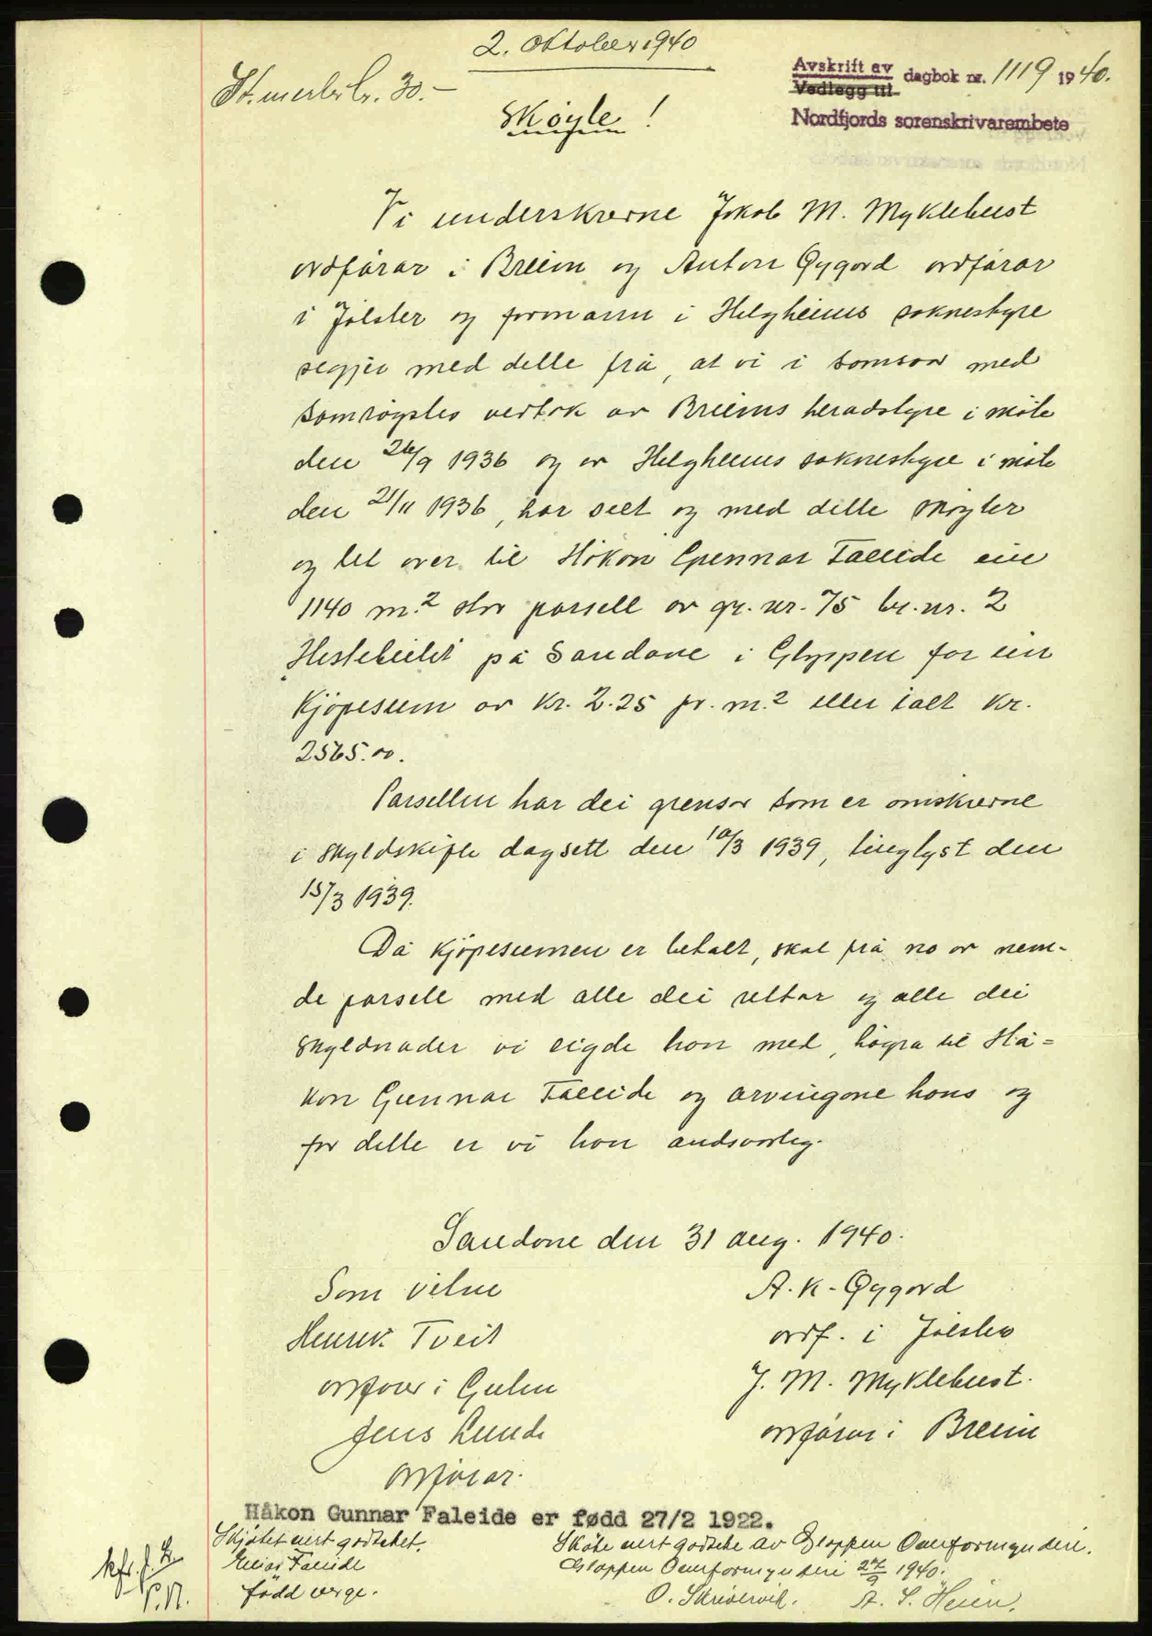 2. Oktober 1940
St. merke kr. 30.-
Avskrift av
Vedlegg til
dagbok nr. 1119 1940.
Nordfjords sorenskrivarembete
Skøyte!
Vi underskrevne Jakob M. Myklebust
ordførar i Breim og Anton Gygord ordførar
i Jølster og formann i Helgheims soknestyre
segjer med dette frå, at vi i samsvar med
samrøystes vedtak av Breims heradstyre i møte
den 26/9 1936 og av Helgheims soknestyre i møte
den 21/11 1936, har selt og med dette skøyter
og let over til Håkon Gunnar Faleide ein
1140 m.2 stor parsell av gr. nr. 75 br. nr. 2
Hestebeitet på Sandane i Gloppen for ein
kjøpesum av kr. 2.25 pr. m.2 eller ialt kr.
2565.00.
Parsellen har dei grensor som er omskrevne
i skyldskifte dagsett den 10/3 1939, tinglyst den
15/3 1939.
Då kjøpesumen er betalt, skal frå no av nem-
de parsell med alle dei rettar og alle dei
skyldnader vi eigde han med, høyra til Hå=
kon Gunnar Faleide og arvingane hans og
for dette er vi han andsvarleg.
Sandane den 31 aug. 1940.
Som vitne
A. K. Gygord
Henrik Tveit
ordf. i Jølster
ordførar i Gulen
J. M. Myklebust.
Jens Lunde
ordførar i Breim
ordførar.
Håkon Gunnar Faleide er fødd 27/2 1922.
Skjøtet vert godteket.
Skøte vert godteke av Gloppen Overformynderi.
Faleide
Gloppen Overformynderi 27/9 1940.
fødd verge.
O. Skrivervik. A. S. Heim.